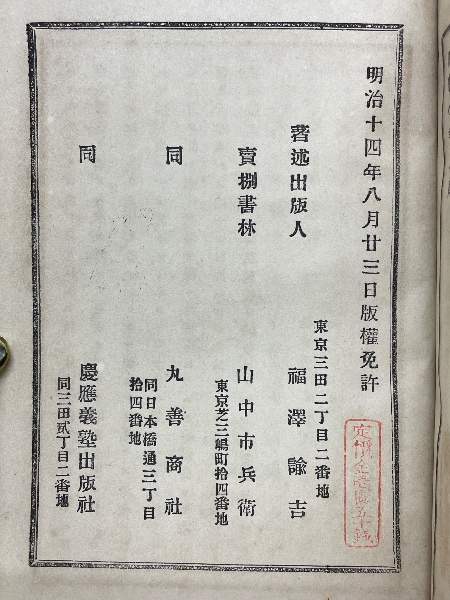 明治十四年八月廿三日版權免許
定價金壱圓五十錢
東京三田二丁目二番地
著述出版人
福澤諭吉
賣捌書林
山中市兵衛
東京芝三嶋町拾四番地
同
丸善商社
同日本橋通三丁目
拾四番地
同
慶應義塾出版社
同三田貳丁目二番地